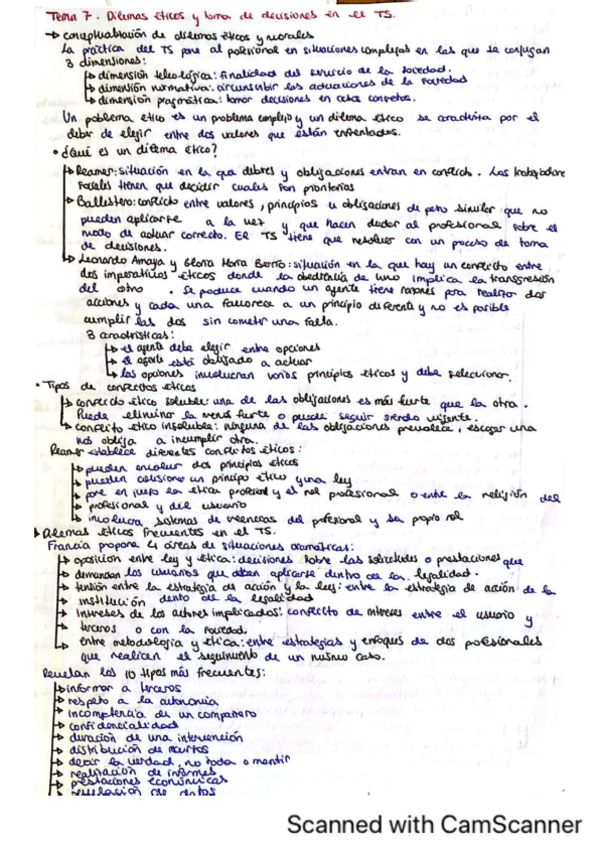 Tema 7. Dilemas éticos y toma de decisiones en el TS.
→ conceptualización de dilemas éticos y morales
La práctica del TS pone al profesional en situaciones complejas en las que se conjugan
3 dimensiones:
↳ dimensión teleológica: finalidad del servicio de la sociedad.
↳ dimensión normativa: circunscribir las actuaciones de la sociedad
↳ dimensión pragmática: tomar decisiones en casos concretos.
Un problema ético es un problema complejo y un dilema ético se caracteriza por el
deber de elegir entre dos valores que están enfrentados.
• ¿Qué es un dilema ético?
↳ Reamer: situación en la que deberes y obligaciones entran en conflicto. Los trabajadores
sociales tienen que decidir cuales son prioritarios
↳ Ballestero: conflicto entre valores, principios u obligaciones de peso similar que no
pueden aplicarse a la vez y que hacen dudar al profesional sobre el
modo de actuar correcto. El TS tiene que resolver con un proceso de toma
de decisiones.
↳ Leonardo Amaya y Gloria María Berrío: situación en la que hay un conflicto entre
dos imperativos éticos donde la obediencia de uno implica la transgresión
del otro. Se produce cuando un agente tiene razones para realizar dos
acciones y cada una favorece a un principio diferente y no es posible
cumplir las dos sin cometer una falta.
3 características:
↳ el agente debe elegir entre opciones
↳ el agente está obligado a actuar
↳ las opciones involucran varios principios éticos y debe seleccionar.
• Tipos de conflictos éticos
↳ conflicto ético soluble: una de las obligaciones es más fuerte que la otra.
Puede eliminar la menos fuerte o puede seguir siendo vigente.
↳ conflicto ético insoluble: ninguna de las obligaciones prevalece, escoger una
nos obliga a incumplir otra.
Reamer establece diferentes conflictos éticos:
↳ pueden envolver dos principios éticos
↳ pueden colisionar un principio ético y una ley
↳ pone en juego la ética profesional y el rol profesional o entre la religión del
↳ profesional y del usuario
↳ involucra sistemas de creencias del profesional y su propio rol
↳ Dilemas éticos frecuentes en el TS.
Francia propone 4 áreas de situaciones dramáticas:
↳ oposición entre ley y ética: decisiones sobre las solicitudes o prestaciones que
↳ demandan los usuarios que deben aplicarse dentro de la legalidad.
↳ tensión entre la estrategia de acción y la ley: entre la estrategia de acción de la
institución dento de la legalidad
↳ intereses de los actores implicados: conflicto de intereses entre el usuario y
↳ terceros o con la sociedad.
↳ entre metodología y ética: entre estrategias y enfoques de dos profesionales
que realicen el seguimiento de un mismo caso.
Revelan los 10 tipos más frecuentes:
↳ informar a terceros
↳ respeto a la autonomía
↳ incompetencia de un compañero
↳ confidencialidad
↳ duración de una intervención
↳ distribución de recursos
↳ decir la verdad, no toda o mentir
↳ realización de informes
↳ prestaciones económicas
↳ revelación de datos
Scanned with CamScanner